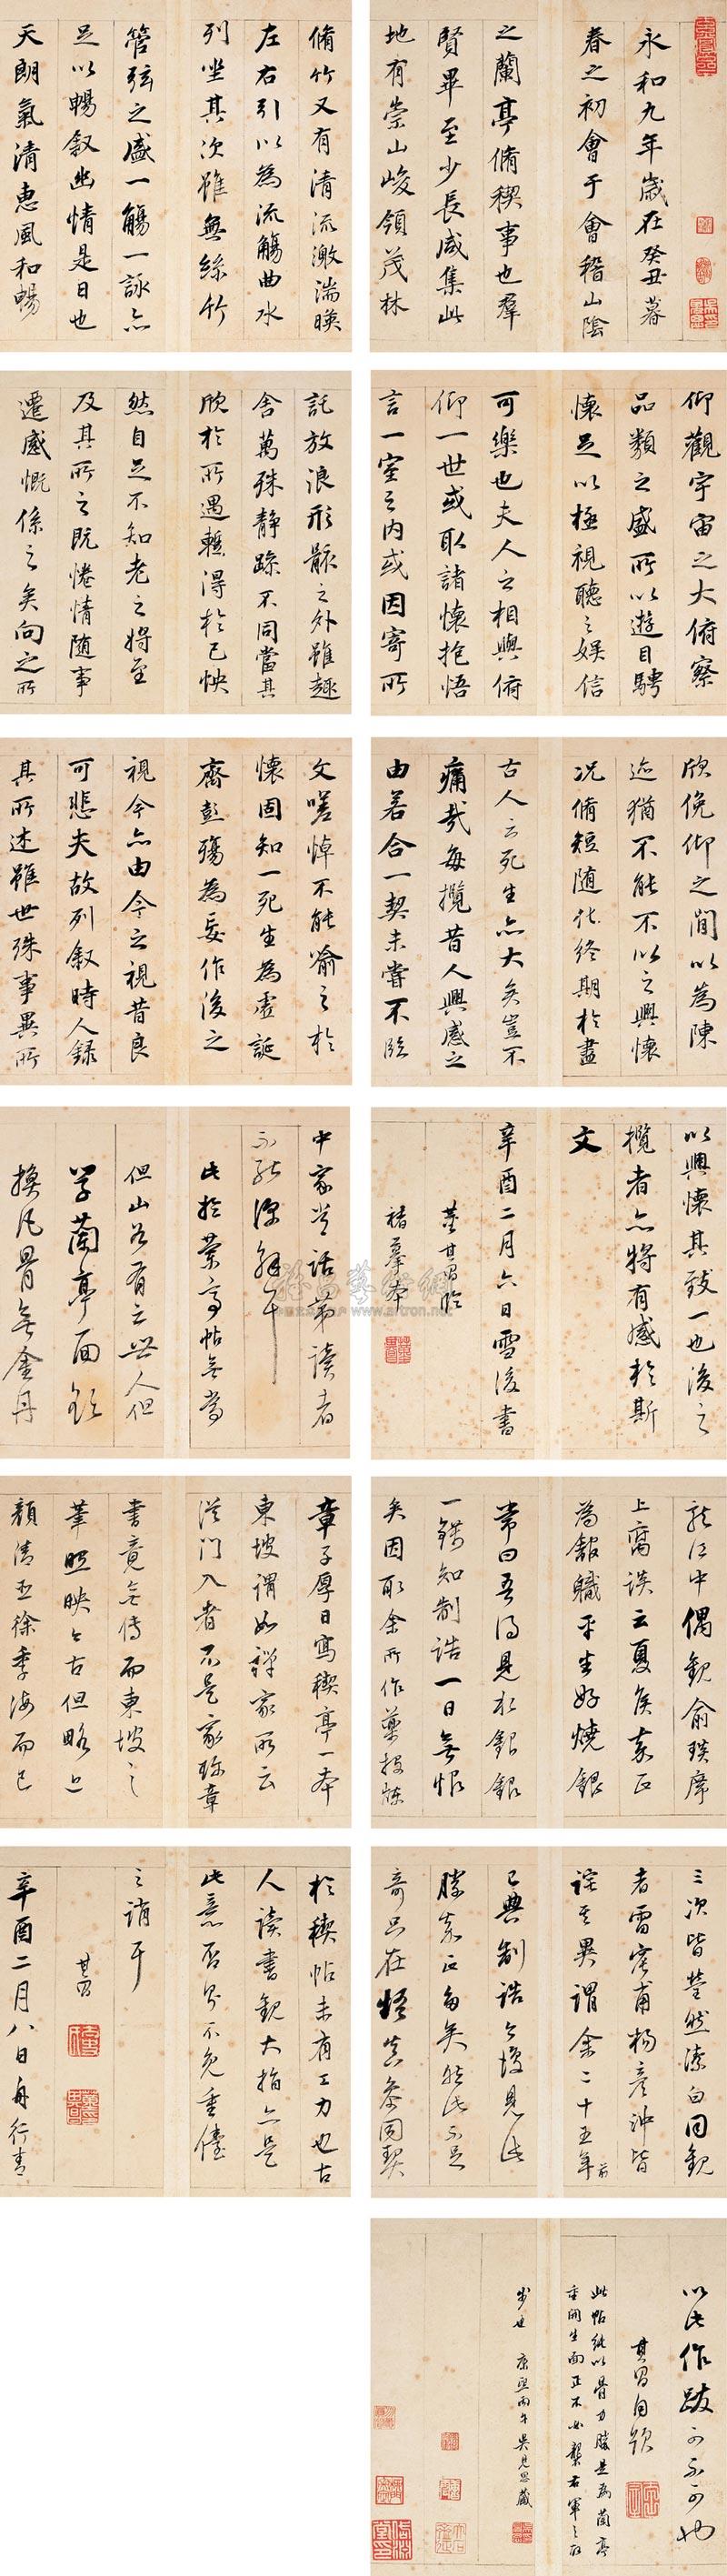 永和九年歲在癸丑暮
春之初會于會稽山陰
之蘭亭脩稧事也羣
賢畢至少長咸集此
地有崇山峻領茂林
脩竹又有清流激湍暎
左右引以為流觴曲水
列坐其次雖無絲竹
管弦之盛一觴一詠亦
足以暢叙幽情是日也
天朗氣清惠風和暢
仰觀宇宙之大俯察
品類之盛所以遊目騁
懷足以極視聽之娛信
可樂也夫人之相與俯
仰一世或取諸懷抱悟
言一室之内或因寄所
託放浪形骸之外雖趣
舍萬殊静躁不同當其
欣於所遇暫得於己怏
然自足不知老之將至
及其所之既惓情随事
遷感慨係之矣向之所
欣俛仰之間以為陳
迹猶不能不以之興懷
况脩短随化終期於盡
古人云死生亦大矣豈不
痛哉每攬昔人興感之
由若合一契未嘗不臨
文嗟悼不能喻之於
懷固知一死生為虛誕
齊彭殤為妄作後之
視今亦由今之視昔良
可悲夫故列叙時人録
其所述雖世殊事異所
以興懷其致一也後之
攬者亦將有感於斯
文
辛酉二月六日雪後書
董其昌臨
褚摹本
中家常話第讀者
不能深解耳
但山谷有云世人但
學蘭亭面欲
換凡骨無金丹
龍江中偶觀俞琰席
上腐談云夏侯嘉正
為館職平生好燒銀
常曰吾得見水銀銀
一錢知制誥一日無恨
矣因取余所作藥投煉
章子厚日寫稧亭一本
東坡謂如禪家所云
從門入者不是家珍章
書竟無傳而東坡之
筆照映今古但略近
顔清臣徐季海而已
三次皆瑩然潔白同觀
者雷甫楊彦沖皆
詫其異謂余二十五年前
已典制誥今復見此
勝嘉正多矣然此不足
奇只在悟真參同契
於稧帖未有工力也古
人讀書觀大指亦是
此意否不免重儓
之誚耳
其昌
辛酉二月八日舟行青
以此作跋可不可也
其昌自題
此帖純以骨力勝是為蘭亭
重開生面正不必襲右軍之
步也 康熙丙午吳見思藏